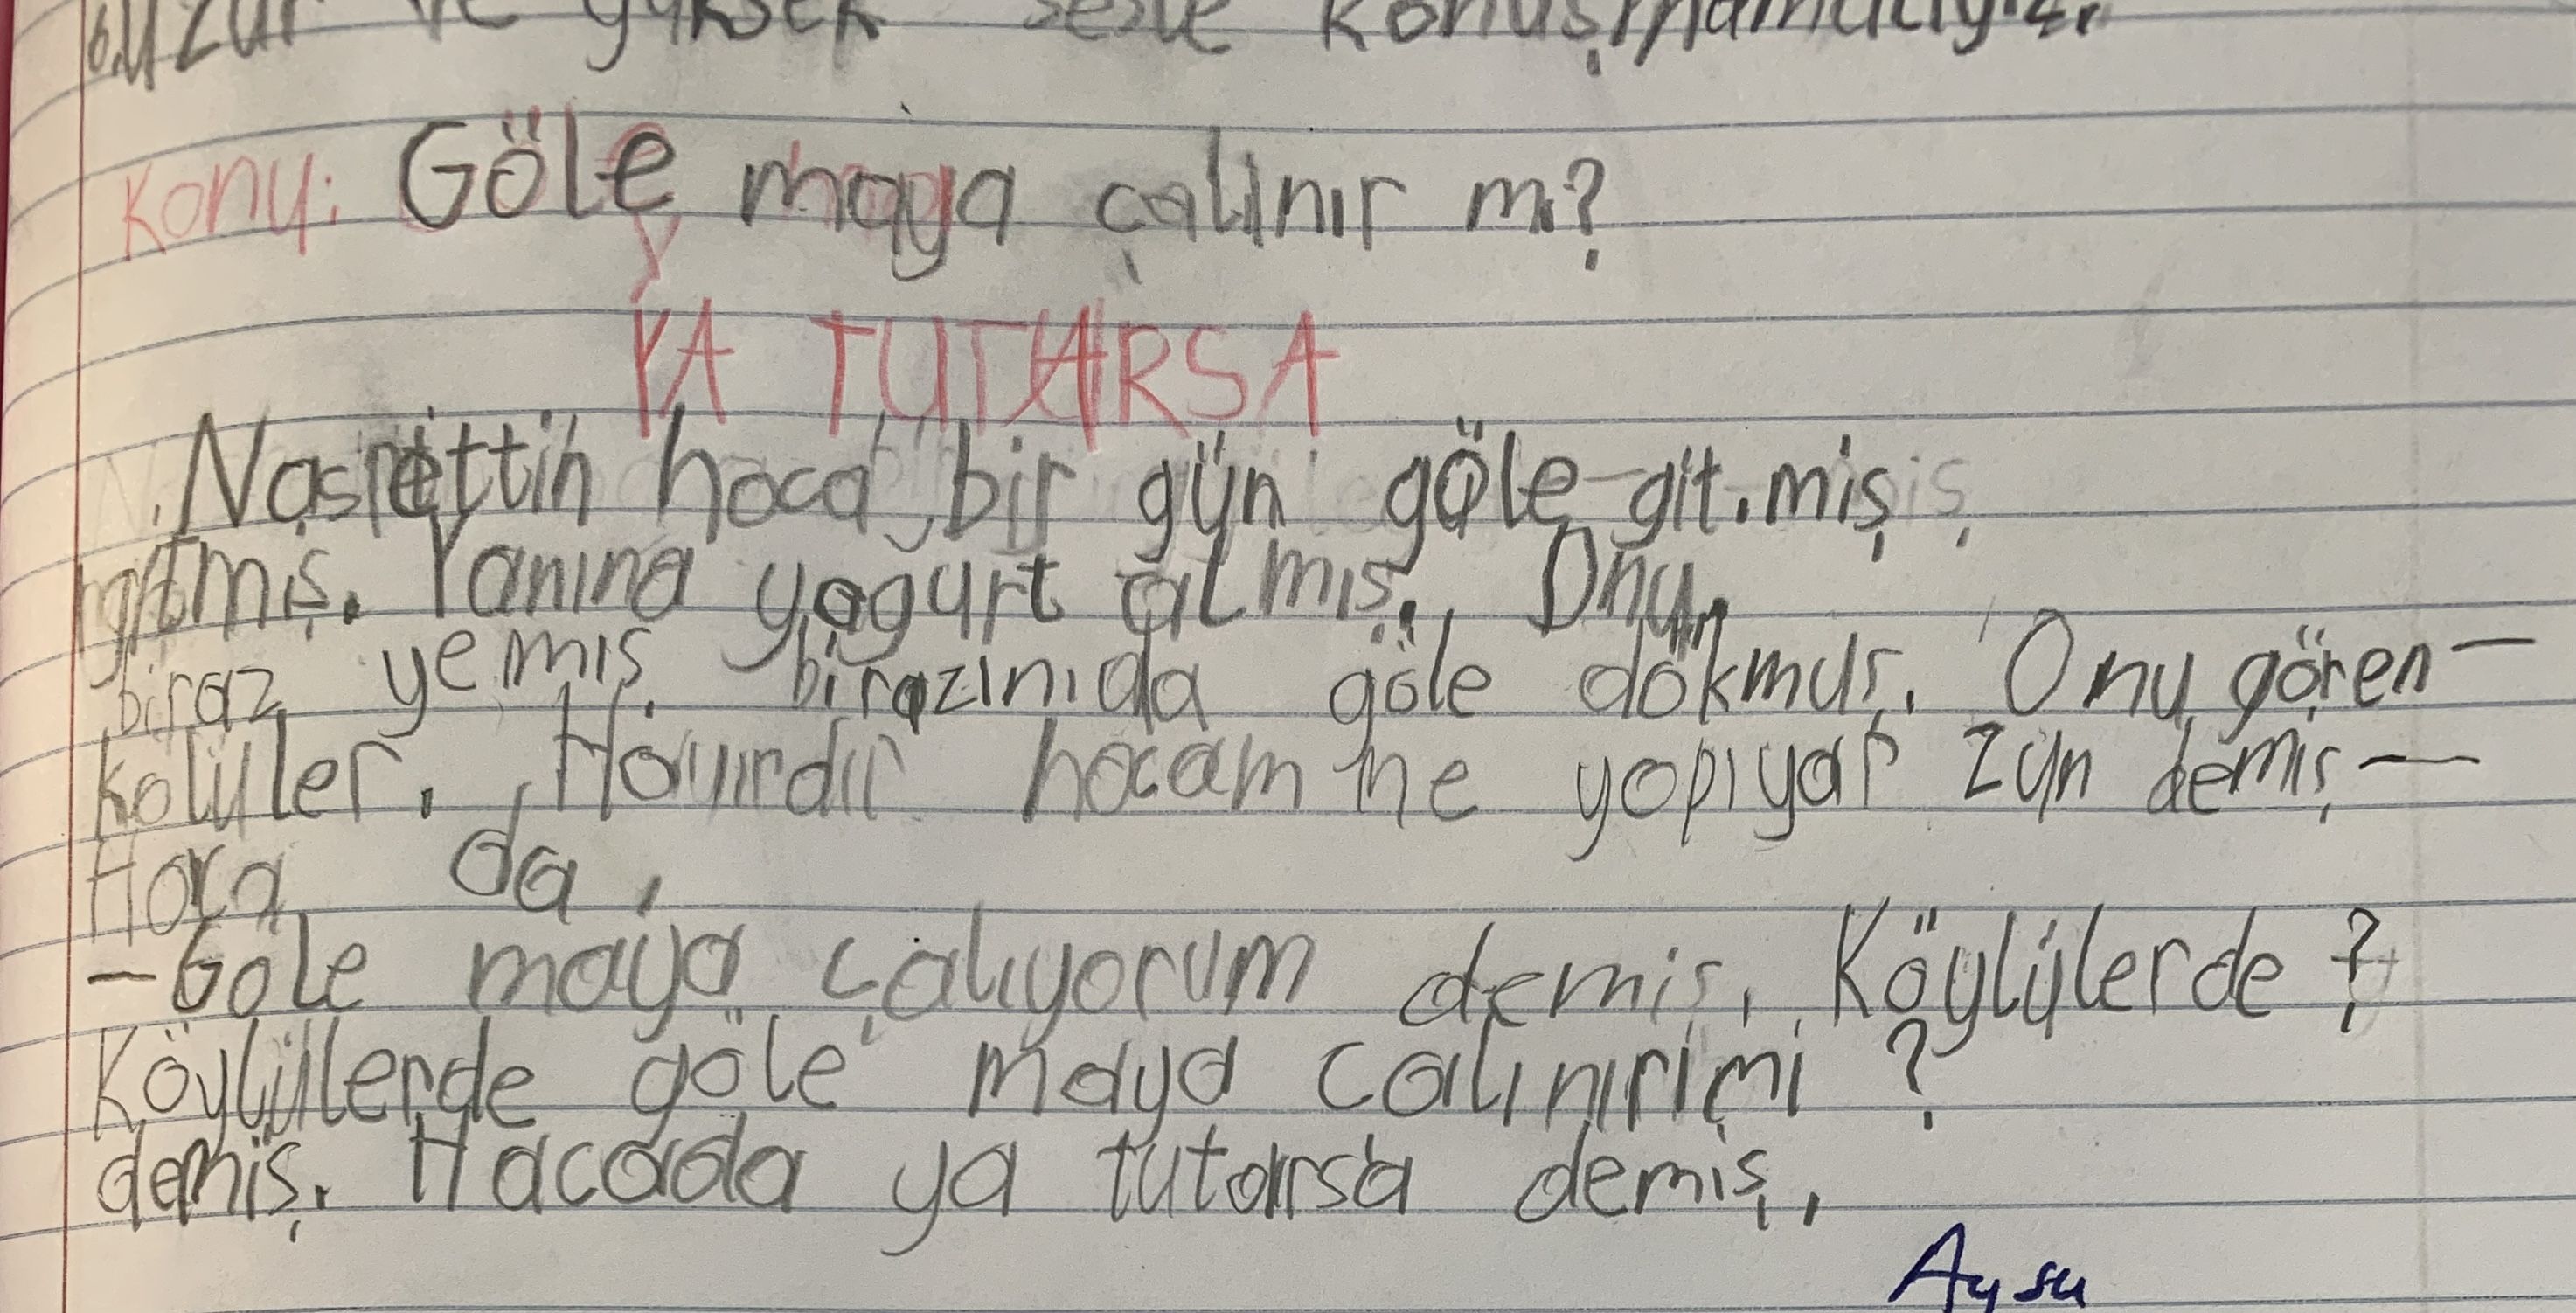 6.Uzun ve yüksek sesle konuşmamalıyız.
Konu: Göle maya çalınır mı?
YA TUTARSA
Nasrettin hoca bir gün göle git.miş
gitmiş. Yanına yogurt almış. Onu
biraz yemiş birazınıda göle dökmüş. Onu gören-
kölüler. Hayırdır hocam ne yapıyar zun demiş-
Hoca da,
-Göle maya çalıyorum demiş. Köylülerde?
Köylülerde göle maya calınırımi?
demiş. Hacada ya tutarsa demiş.
Aysu